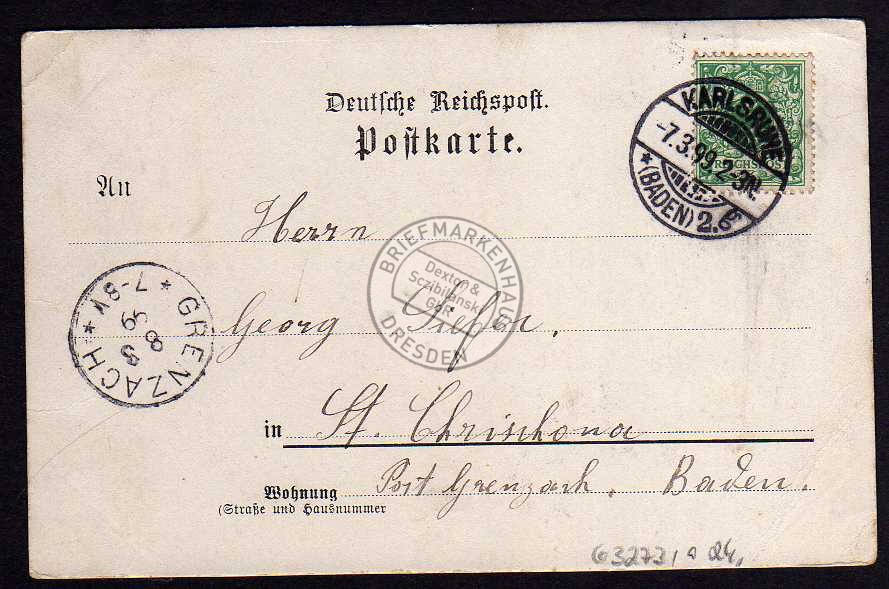 Deutsche Reichspost.
Postkarte.
KARLSRUHE
-7.3.99 2-3N.
*(BADEN) 2.b
REICHSPOST
An
Herrn
BRIEFMARKENHAUS
Dexton &
Sczibilanski
GbR
DRESDEN
* GRENZACH *
8 3 99
7-8V
Georg
in St. Chrischona
Wohnung Post Grenzach. Baden.
(Straße und Hausnummer
63273, a 24,